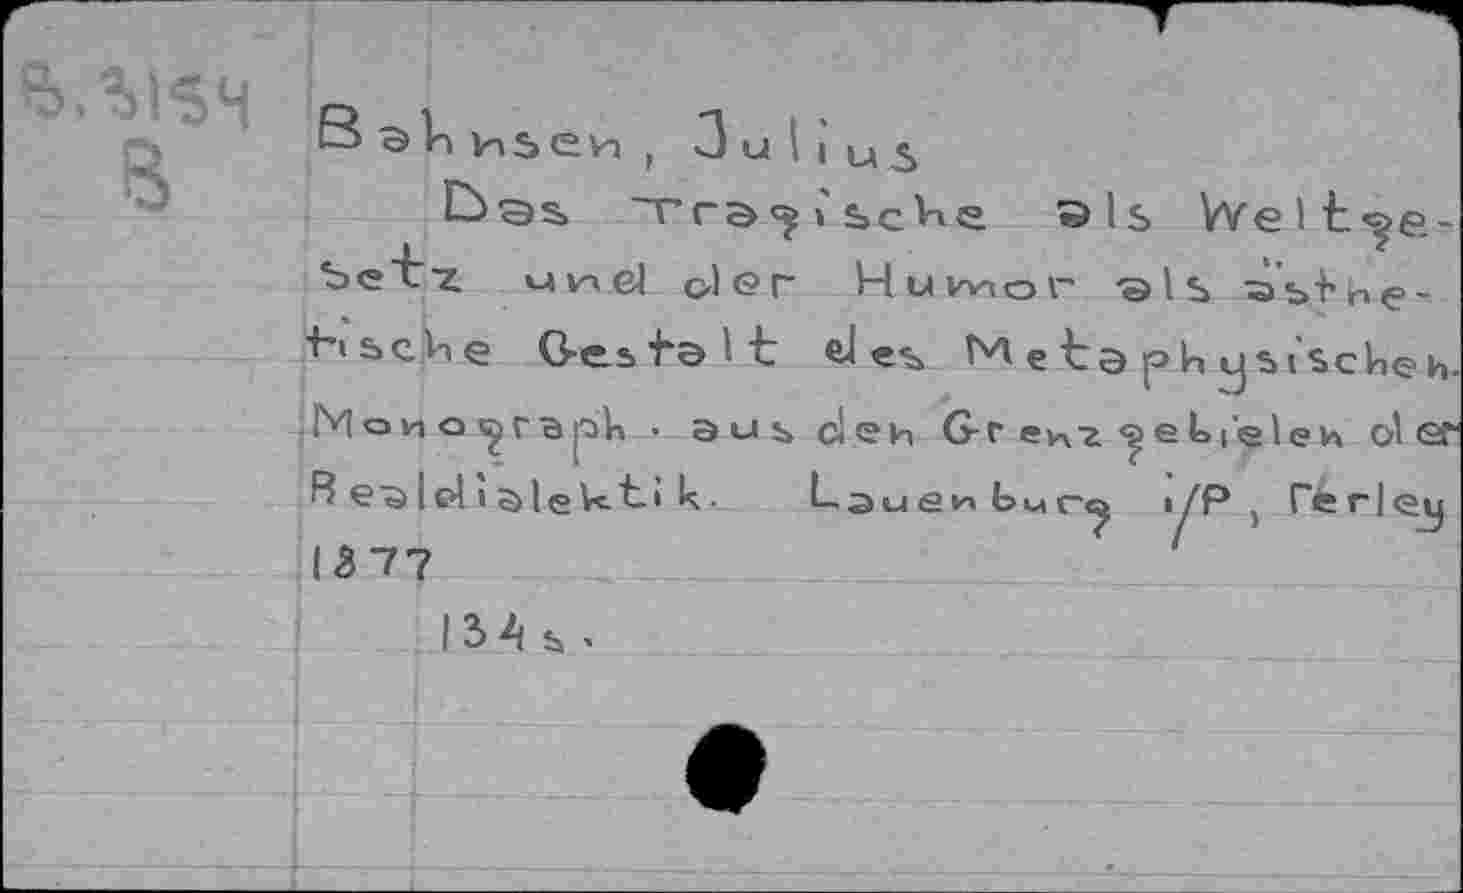 B.3154
B
Bahnsen, Julius
Das Tragische als Weltge-
setz und der Humor als ästhe-
tische Gestalt des Metaphysischen.
Monograph. aus den Grenzgebielen der
Realdialektik. Lauenburg i/P, Ferley
1877
134 s.